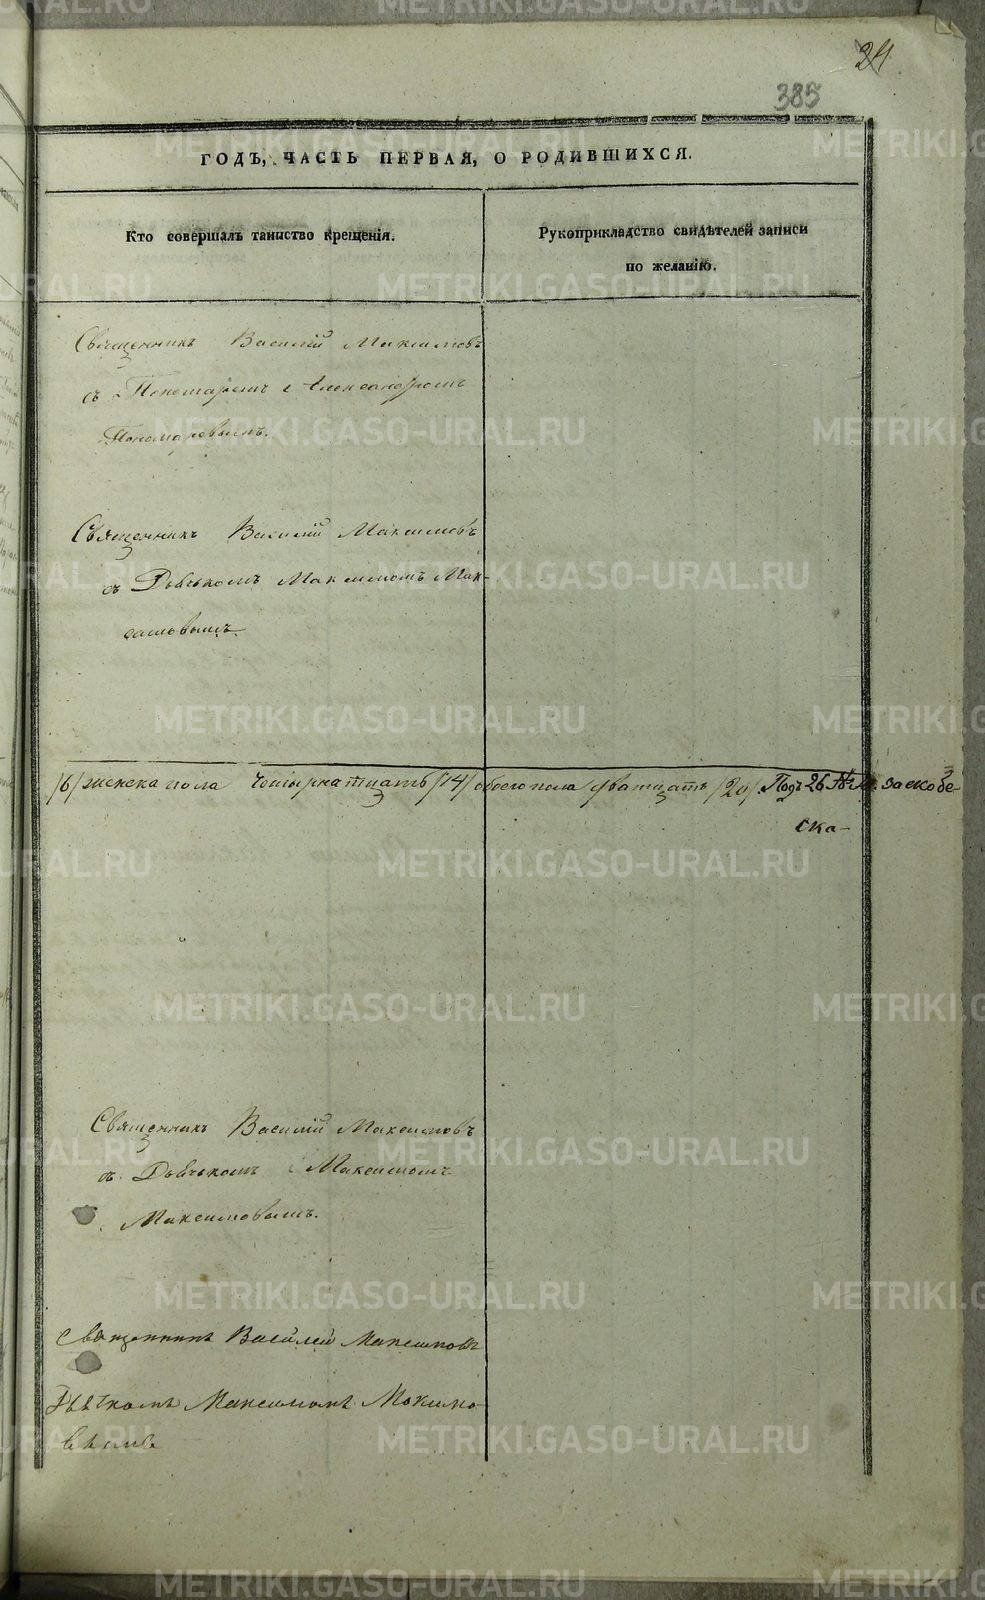 24
385
ГОДЪ, ЧАСТЬ ПЕРВАЯ, О РОДИВШИХСЯ.
Кто совершалъ таинство крещенія.
Рукоприкладство свидѣтелей записи
по желанію.
Священникъ Василій Максимовъ
съ Пономаремъ Александромъ
Пономаревымъ.
Священникъ Василій Максимовъ
съ Дьячкомъ Максимомъ Мак-
симовымъ.
/6/ женска пола четырнатцать /14/ обоего пола дватцать /20/. Подъ 26 №
ска-
Священникъ Василій Максимовъ
съ Дьячкомъ Максимомъ
Максимовымъ.
Священникъ Василей Максимовъ
Дьячкомъ Максимомъ
METRIKI.GASO-URAL.RU